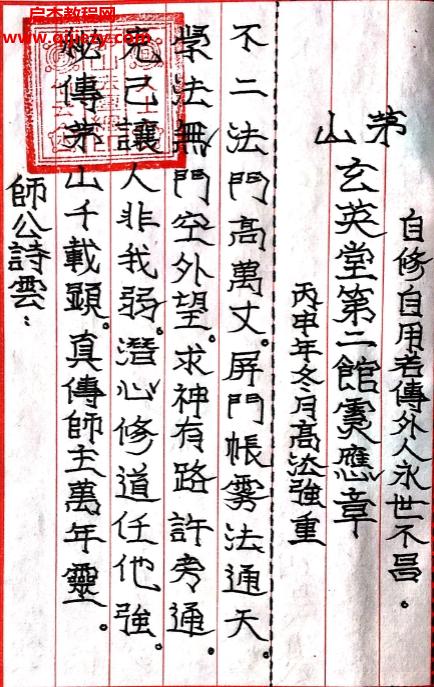 启杰教程网
www.qijiazy.com
自修自用若傳外人永世不昌。
茅山玄英堂第二館靈應章
丙申年冬月高法強重
不二法門高萬丈。屏門帳雾法通天。
學法無門空外望。求神有路許旁通
克己讓人非我弱。潛心修道任他強。
秘傳茅山千載顯。真傳師主萬年靈。
師公詩雲：